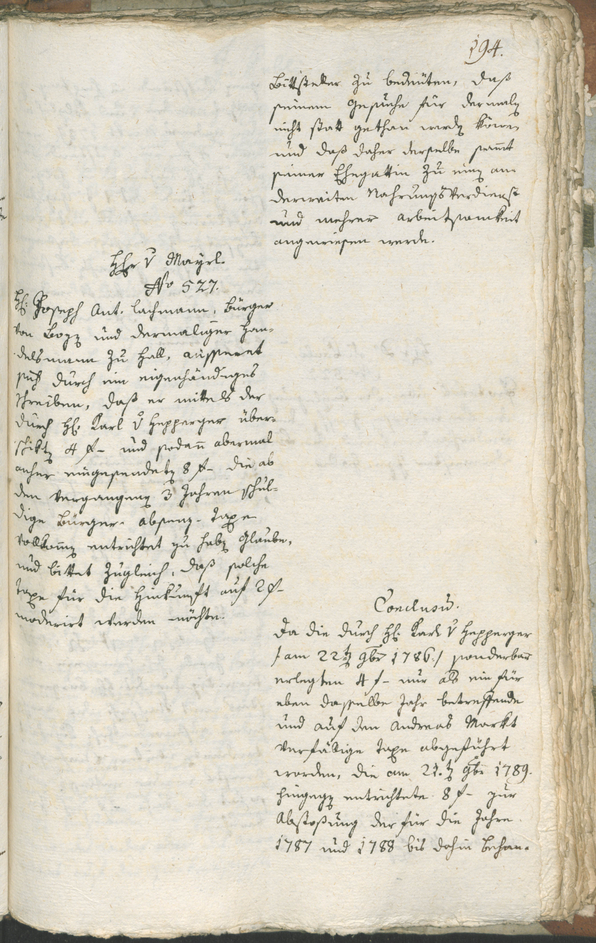 194.
Bittsteller zu bedeuten, daß
seinem Gesuche für dermaln
nicht statt gethan werden könne
und daß daher derselbe samt
seiner Ehegattin zu einem an-
derweiten Nahrungsverdienst
und mehrer arbeitsamkeit
angewiesen werde.
Hhr v Mayrl.
No 527.
H: Joseph Ant. Lachmann, Bürger
von Boz̄ und dermaliger Han-
delsmann zu Hall, äusseret
sich durch ein eigenhändiges
Schreiben, daß er mittels der
durch H: Karl v Hepperger über-
schikten 4 f– und sodann abermal
anher eingesendeten 8 f– die ab
den vergangenen 3 Jahren schul-
dige Bürger- absenz- Taxe
vollkommen entrichtet zu haben glaube,
und bittet zugleich, daß solche
Taxe für die Hinkunft auf 2 f–
moderirt werden möchte.
Conclusum.
Da die durch H: Karl v Hepperger
/: am 22ten 9br 1786 :/ sonderbar
erlegten 4 f– nur als ein für
eben dasselbe Jahr betreffende
und auf den Andreas Markt
verfallige Taxe abgeführt
worden, die am 21.ten 9br 1789.
hingegen entrichtete 8 f– zur
Abstossung der für die Jahre
1787 und 1788 bis dahin behan-